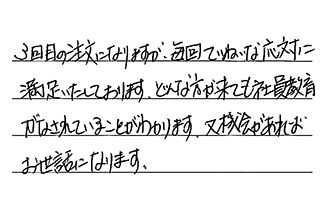 3回目の注文になりますが、毎回ていねいな応対に
満足いたしております。どんな方が来ても社員教育
がなされていることがわかります。又機会があれば
お世話になります。